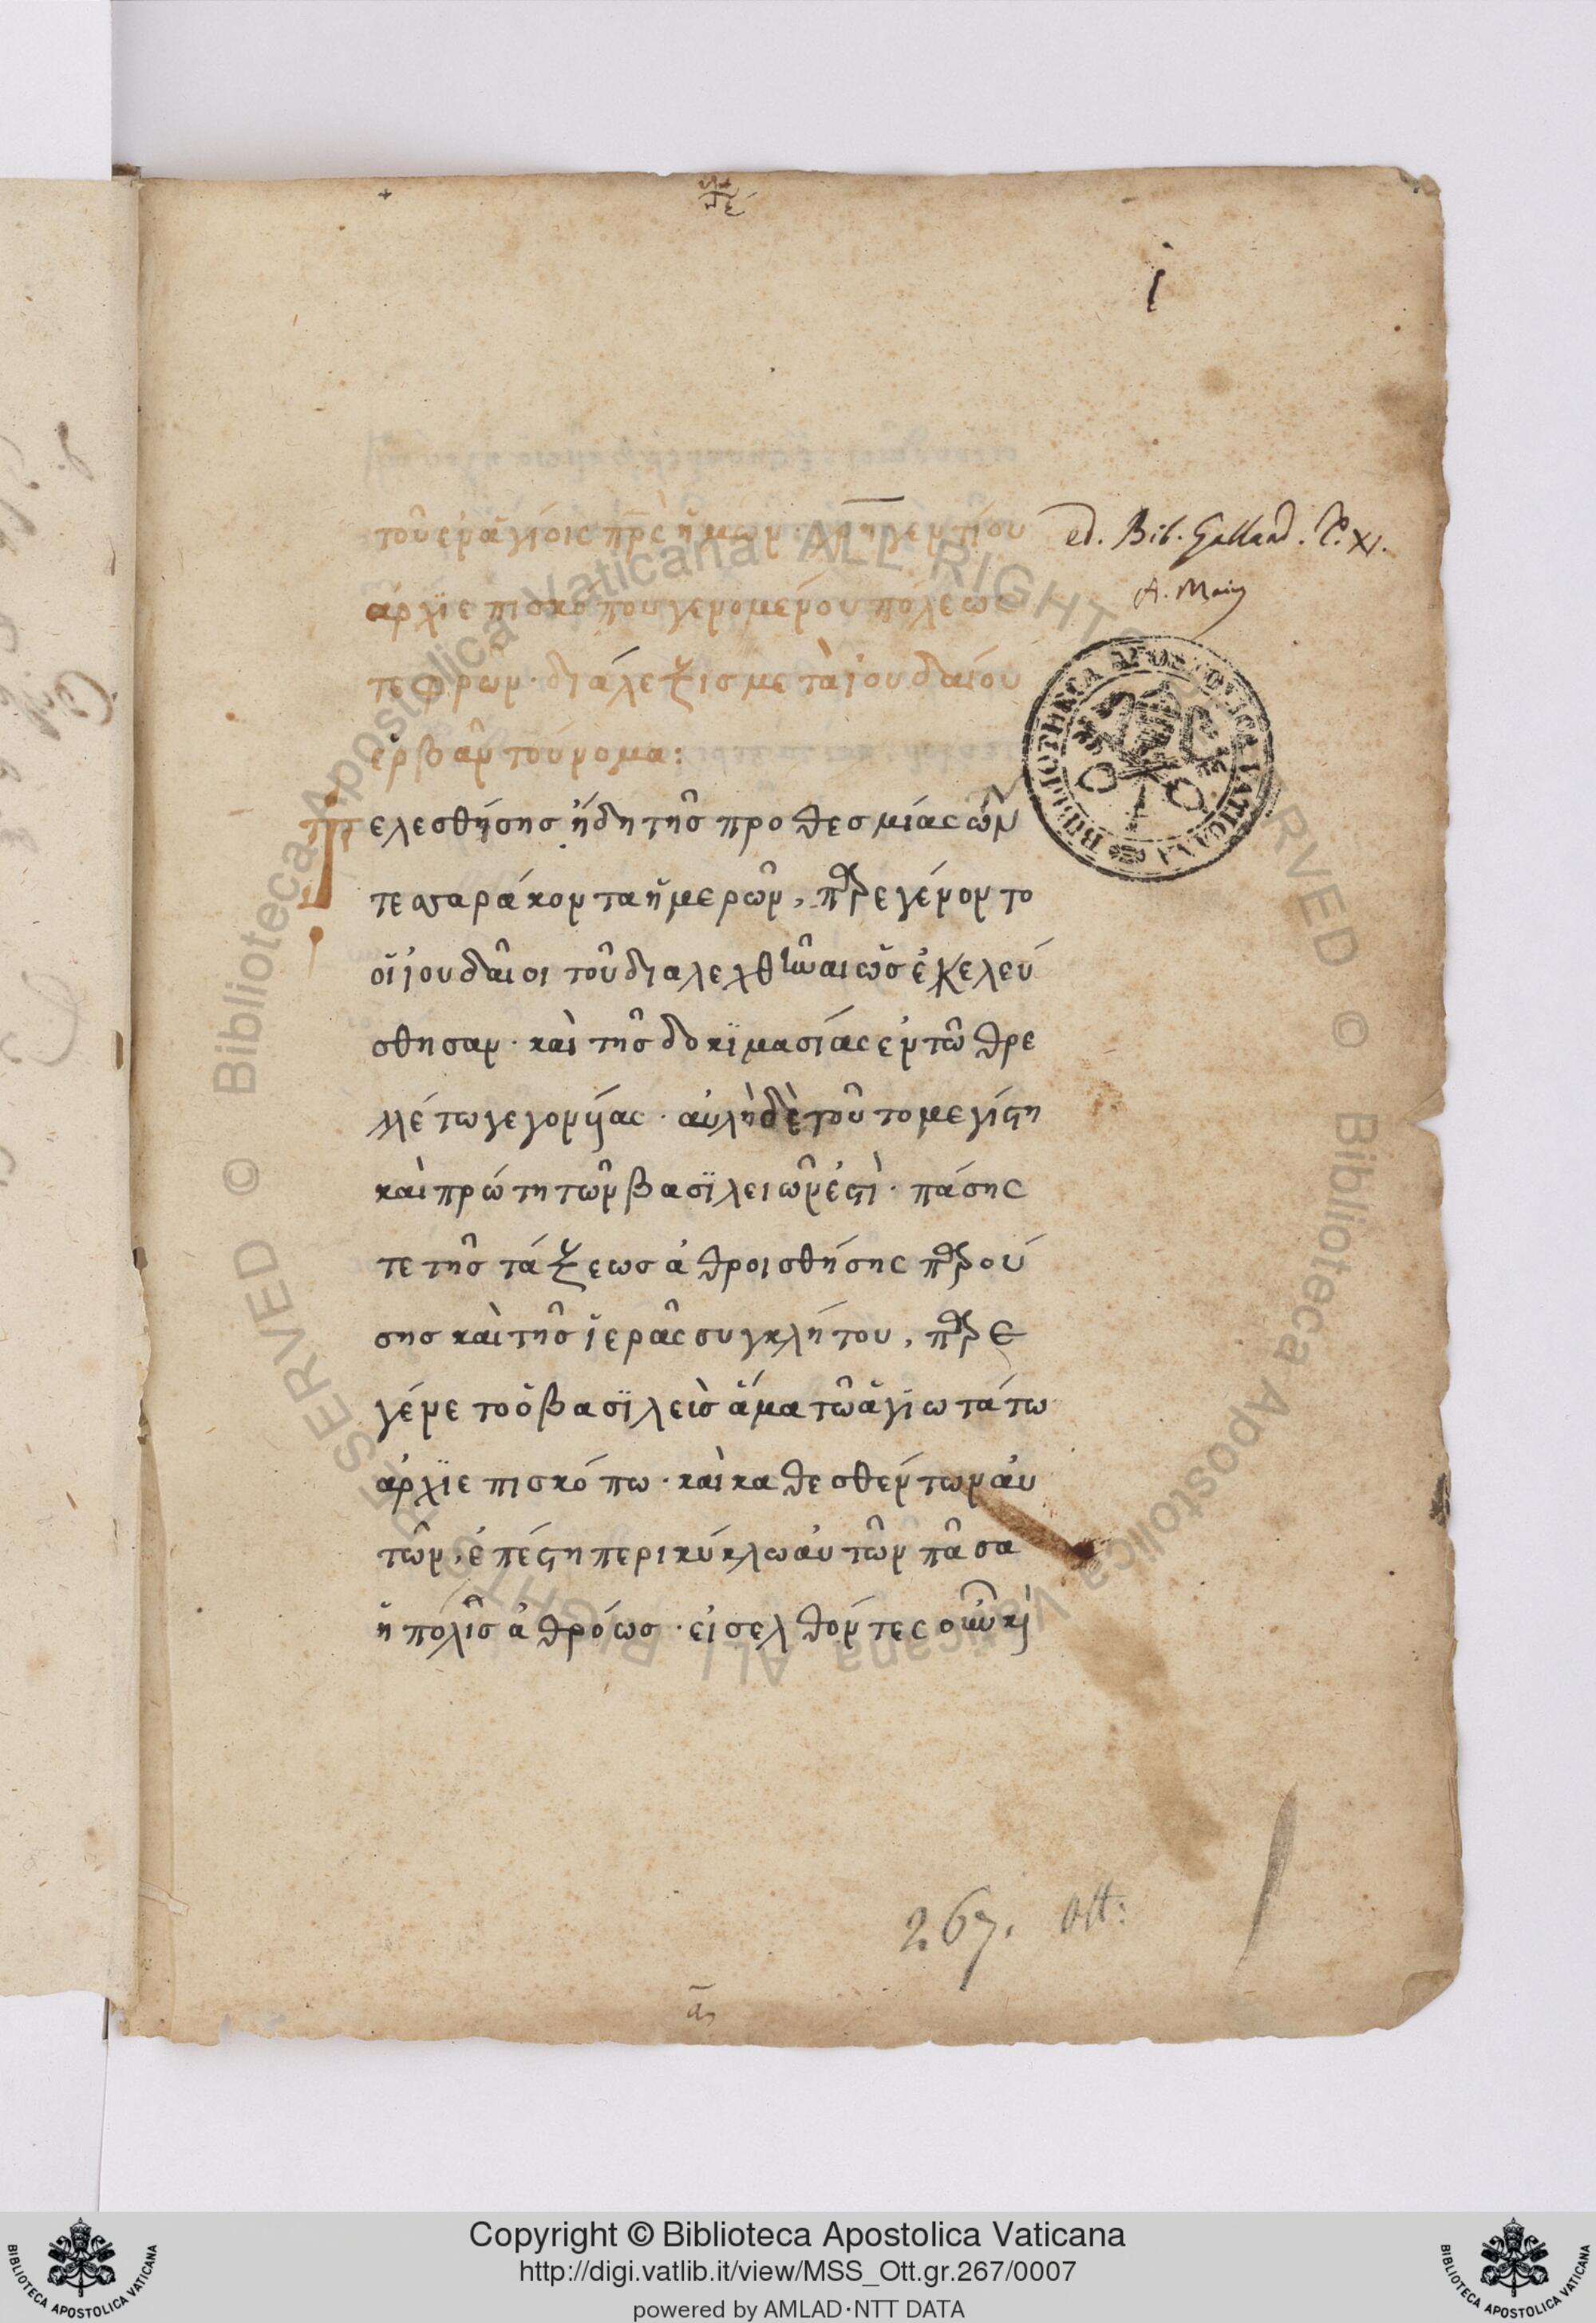 τοῦ ἐν ἁγίοις πρς ἡμῶν· γρηγεντίου
ἀρχϊεπισκόπου γενομένου πόλεως
τεφρῶν· διάλεξις μετὰ ἰουδαίου
ἑρβὰν τοὔνομα:
Τελεσθήσης ἤδη τῆς προθεσμίας τῶν
τεσσαράκοντα ἡμερῶν, παρεγένοντο
οἱ ἰουδαῖοι τοῦ διαλεχθῆναι ὡς ἐκελεύ
σθησαν· καὶ τῆς δοκϊμασίας ἐν τῶ θρε
λλέτω γεγονυίας· αὐλὴ δὲ τοῦτο μεγίστη
καὶ πρώτη τῶν βασϊλειῶν ἐστὶ· πάσης
τε τῆς τάξεως ἀθροισθήσης παρού
σης καὶ τῆς ἱερᾶς συγκλήτου, παρε
γένετο ὁ βασϊλεὺς ἅμα τῶ ἁγϊωτάτω
ἀρχϊεπισκόπω· καὶ καθεσθέντων αὐ
τῶν, ἐπέστη περικύκλω αὐτῶν πᾶσα
ἡ πόλις ἀθρόως· εἰσελθόντες οὖν καὶ
ed. Bib. Galland. T. XI.
A. Maiy
BIBLIOTHECA APOSTOLICA VATICANA
267. Ott:
ᾱ
Copyright © Biblioteca Apostolica Vaticana
http://digi.vatlib.it/view/MSS_Ott.gr.267/0007
powered by AMLAD·NTT DATA